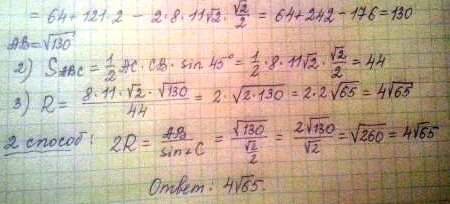 = 64 + 121·2 − 2·8·11√2·√2/2 = 64+242−176=130
AB=√130
2) S_ABC = 1/2 AC·CB·sin 45° = 1/2·8·11√2·√2/2 = 44
3) R = 8·11·√2·√130/44 = 2·√2·130 = 2·2√65 = 4√65
2 способ: 2R = AB/sin∠C = √130/(√2/2) = 2√130/√2 = √260 = 4√65
Ответ: 4√65.